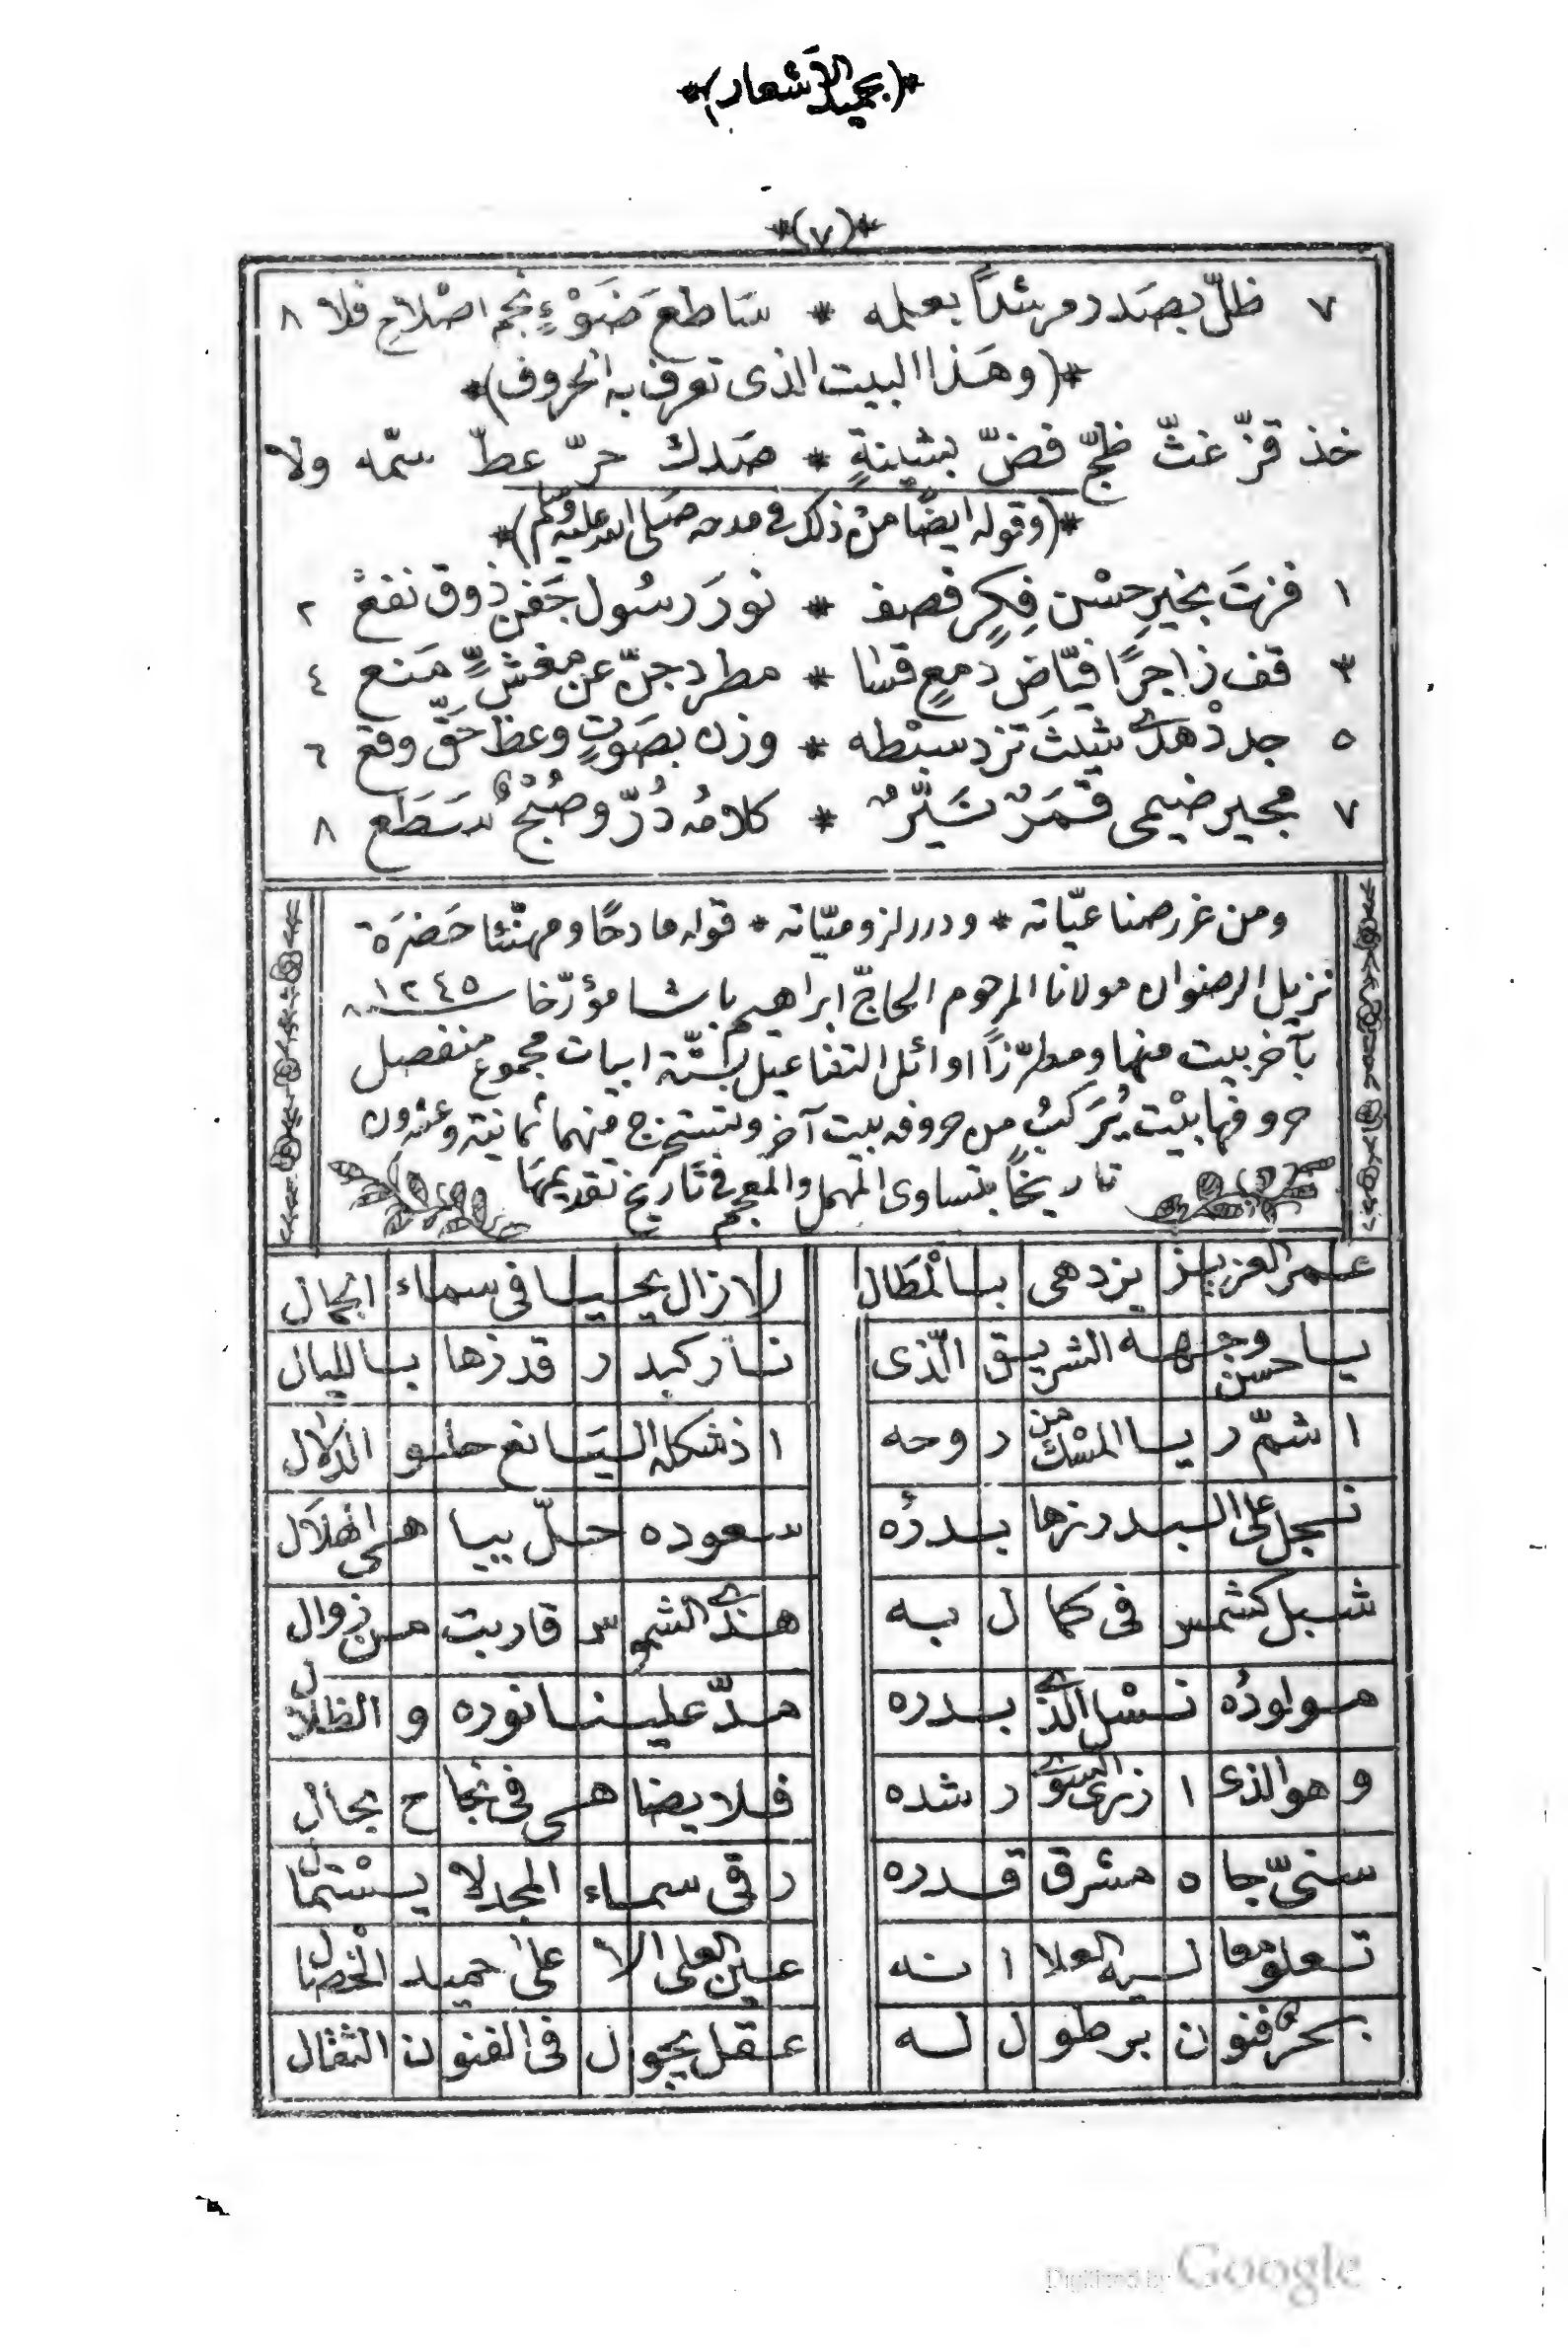 *(بجميل الأشعار)*
*(٧)*
٧ ظلّ بصدد مرشداً بعلمه * سَاطعَ ضَوْءٍ نجم اصْلاحٍ فلا ٨
*(وهَذا البيت الذى تعرف به الحروف)*
خذ قزّ غثّ ظجّ فضّ بشينةٍ * صدك حرّ عطّ سمّه ولا
*(وقوله ايضًا من ذلك فى مدحه صَلى الله عليه وسلم)*
١ فزتَ بخيرِ حسْن فِكرٍ قصف * نورَ رسُول جَفن ذوق نفع ٢
٣ قف زاجرًا فيّاض دمعٍ قسا * مطرد جنّ عن مغشٍّ مَنع ٤
٥ جد ذْهدى شيثَ تزد سبْطه * وزن بصَوتٍ وعظ حَقّ وقع ٦
٧ مجير ضيمى قمَرٌ نيّرٌ * كلامُه دُرّ وصُبْحٌ سَطَع ٨
ومن غرر صناعيّاته * ودرر لزوميّاته * قوله مادحًا ومهنّئا حَضرَة
نزيل الرضوان مولانا المرحوم الحاجّ ابراهيم باشا مؤرّخا ١٢٤٥
بآخر بيت منها ومطرّزاً اوائل التفاعيل بستّة ابيات مجموع منفصل
حروفها بيْت يُرَكبُ من حروفه بيت آخر وتستخرج منهما ثمانية وعشرون
تاريخًا بتساوى المهمل والمعجم فى تاريخ تقديمهَا
عمر العزيز يزدهى بالمْطَال لا زال يحيا فى سماء الجمال
يا حسن وجهه الشريق الّذى نار كبد رقدزها بالليال
اشمّ ريا المسْك من روحه اذ شكله اليَانع حلو الدلال
نجل على البدر زها بدرُه سعوده حلّ بيبا هى الهلال
شبل كشمس فى كمال به هذى الشموس قاربت من زوال
مولودُه نسْل الذى بدره مدّ علينا نوره والظلال
وهو الذى ازهى السوى رشده فلا يضاهى فى نجاح بحال
سنىّ جاه مشرق قدره رقى سماء المجد لا يسْتمال
تعلو معاليه العلا انه عين العلى الا على حميد الخصال
بحر فنون بر طول له عقل يجول فى الفنون الثقال
Digitized by Google